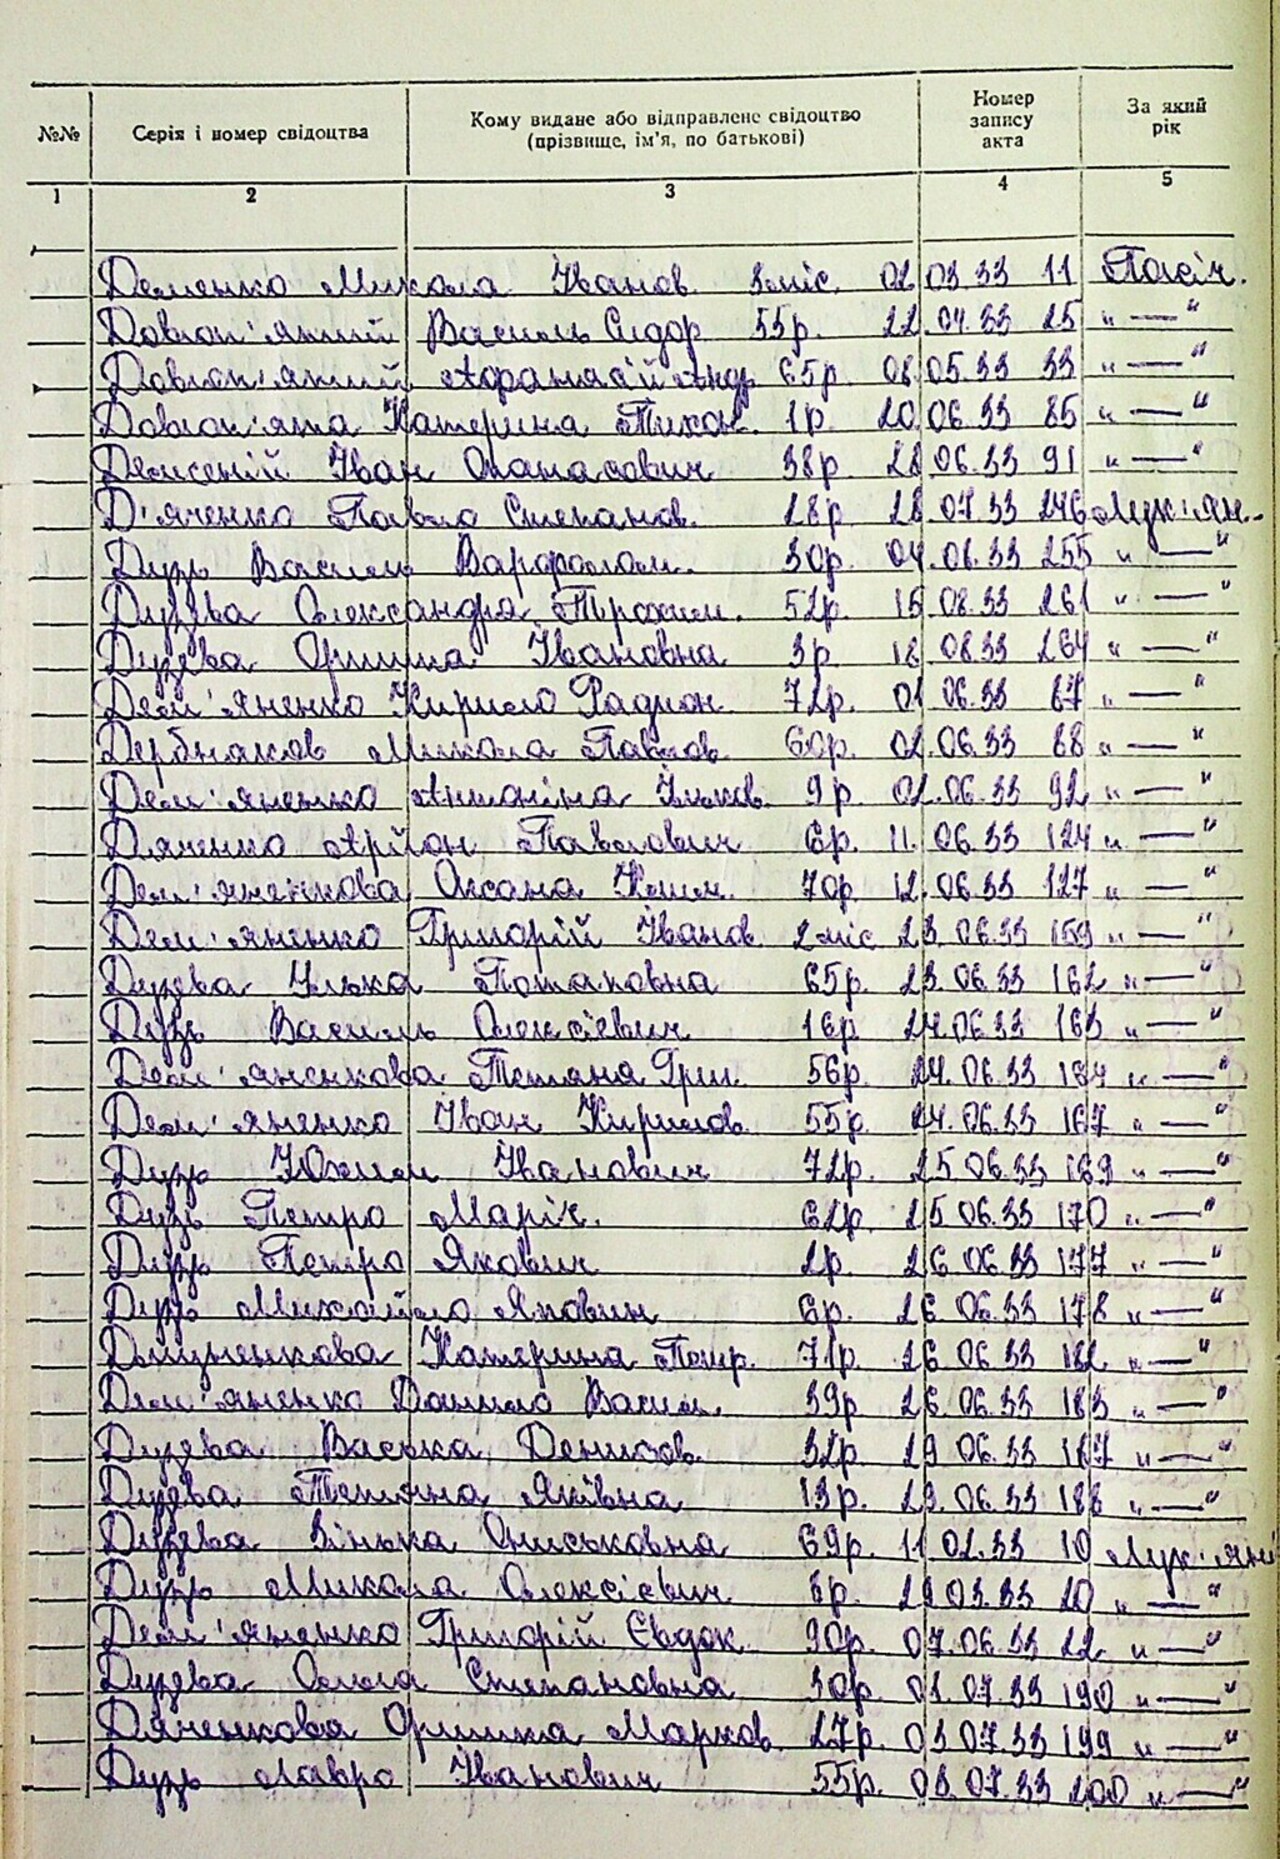 №№ Серія і номер свідоцтва Кому видане або відправлене свідоцтво (прізвище, ім'я, по батькові) Номер запису акта За який рік
1 2 3 4 5
Деменко Микола Іванов. 3 міс. 02 03.33 11 Пасіч.
Довгоп'ятий Василь Сидор 55р. 22.04.33 25 " — "
Довгоп'ятий Афанасій Андр 65р. 08.05.33 33 " — "
Довгоп'ята Катерина Тихон. 1р. 20.06.33 85 " — "
Іван Опанасович 38р. 28.06.33 91 " — "
Д'яченко Павло Степанов. 28р. 28.07.33 246 Лук'ян.
Дузь Василь Варфолом. 30р. 04.08.33 255 " — "
Дузева Олександра Трохим. 52р. 15 08.33 261 " — "
Дузева Оришка Івановна 3р. 18 08.33 264 " — "
Дем'яненко Кирило Радион. 72р. 01 06.33 87 " — "
Микола Павлов 60р. 02.06.33 88 " — "
Дем'яненко Антоніна Ільков. 9р. 02.06.33 92 " — "
Дяченко Павлович 6р. 11. 06.33 124 " — "
Дем'яненкова Оксана Клим. 70р. 12.06.33 127 " — "
Дем'яненко Григорій Іванов. 2 міс 23.06.33 159 " — "
Дузева Улька Потаповна 65р. 23.06.33 162 " — "
Дузь Василь Олексієвич 16р 24.06.33 163 " — "
Дем'яненкова Тетяна Григ. 56р. 24.06.33 164 " — "
Дем'яненко Іван Кирилов. 55р. 24.06.33 167 " — "
Дузь Юхим Іванович 72р. 25.06.33 169 " — "
Дузь Петро Маріч. 62р. 25 06.33 170 " — "
Дузь Петро Якович 2р. 26 06.33 177 " — "
Дузь Михайло Якович 6р. 26 06.33 178 " — "
Катерина Петр. 71р. 26 06.33 182 " — "
Дем'яненко Данило Васил. 39р. 26.06.33 183 " — "
Дузева Васька Денисов. 32р 29 06.33 187 " — "
Дузева Тетяна Яківна 13р. 29.06.33 188 " — "
Дузева Зінька Ониськовна 69р. 11 02.33 10 Лук'ян
Дузь Микола Олексієвич 6р. 29 03.33 20 " — "
Дем'яненко Григорій Євдок. 90р. 07.06.33 22 " — "
Дузева Ольга Степановна 30р. 01.07.33 190 " — "
Дяченкова Оришка Марков. 27р. 03 07.33 199 " — "
Дузь Лавро Іванович 55р. 03.07.33 200 " — "